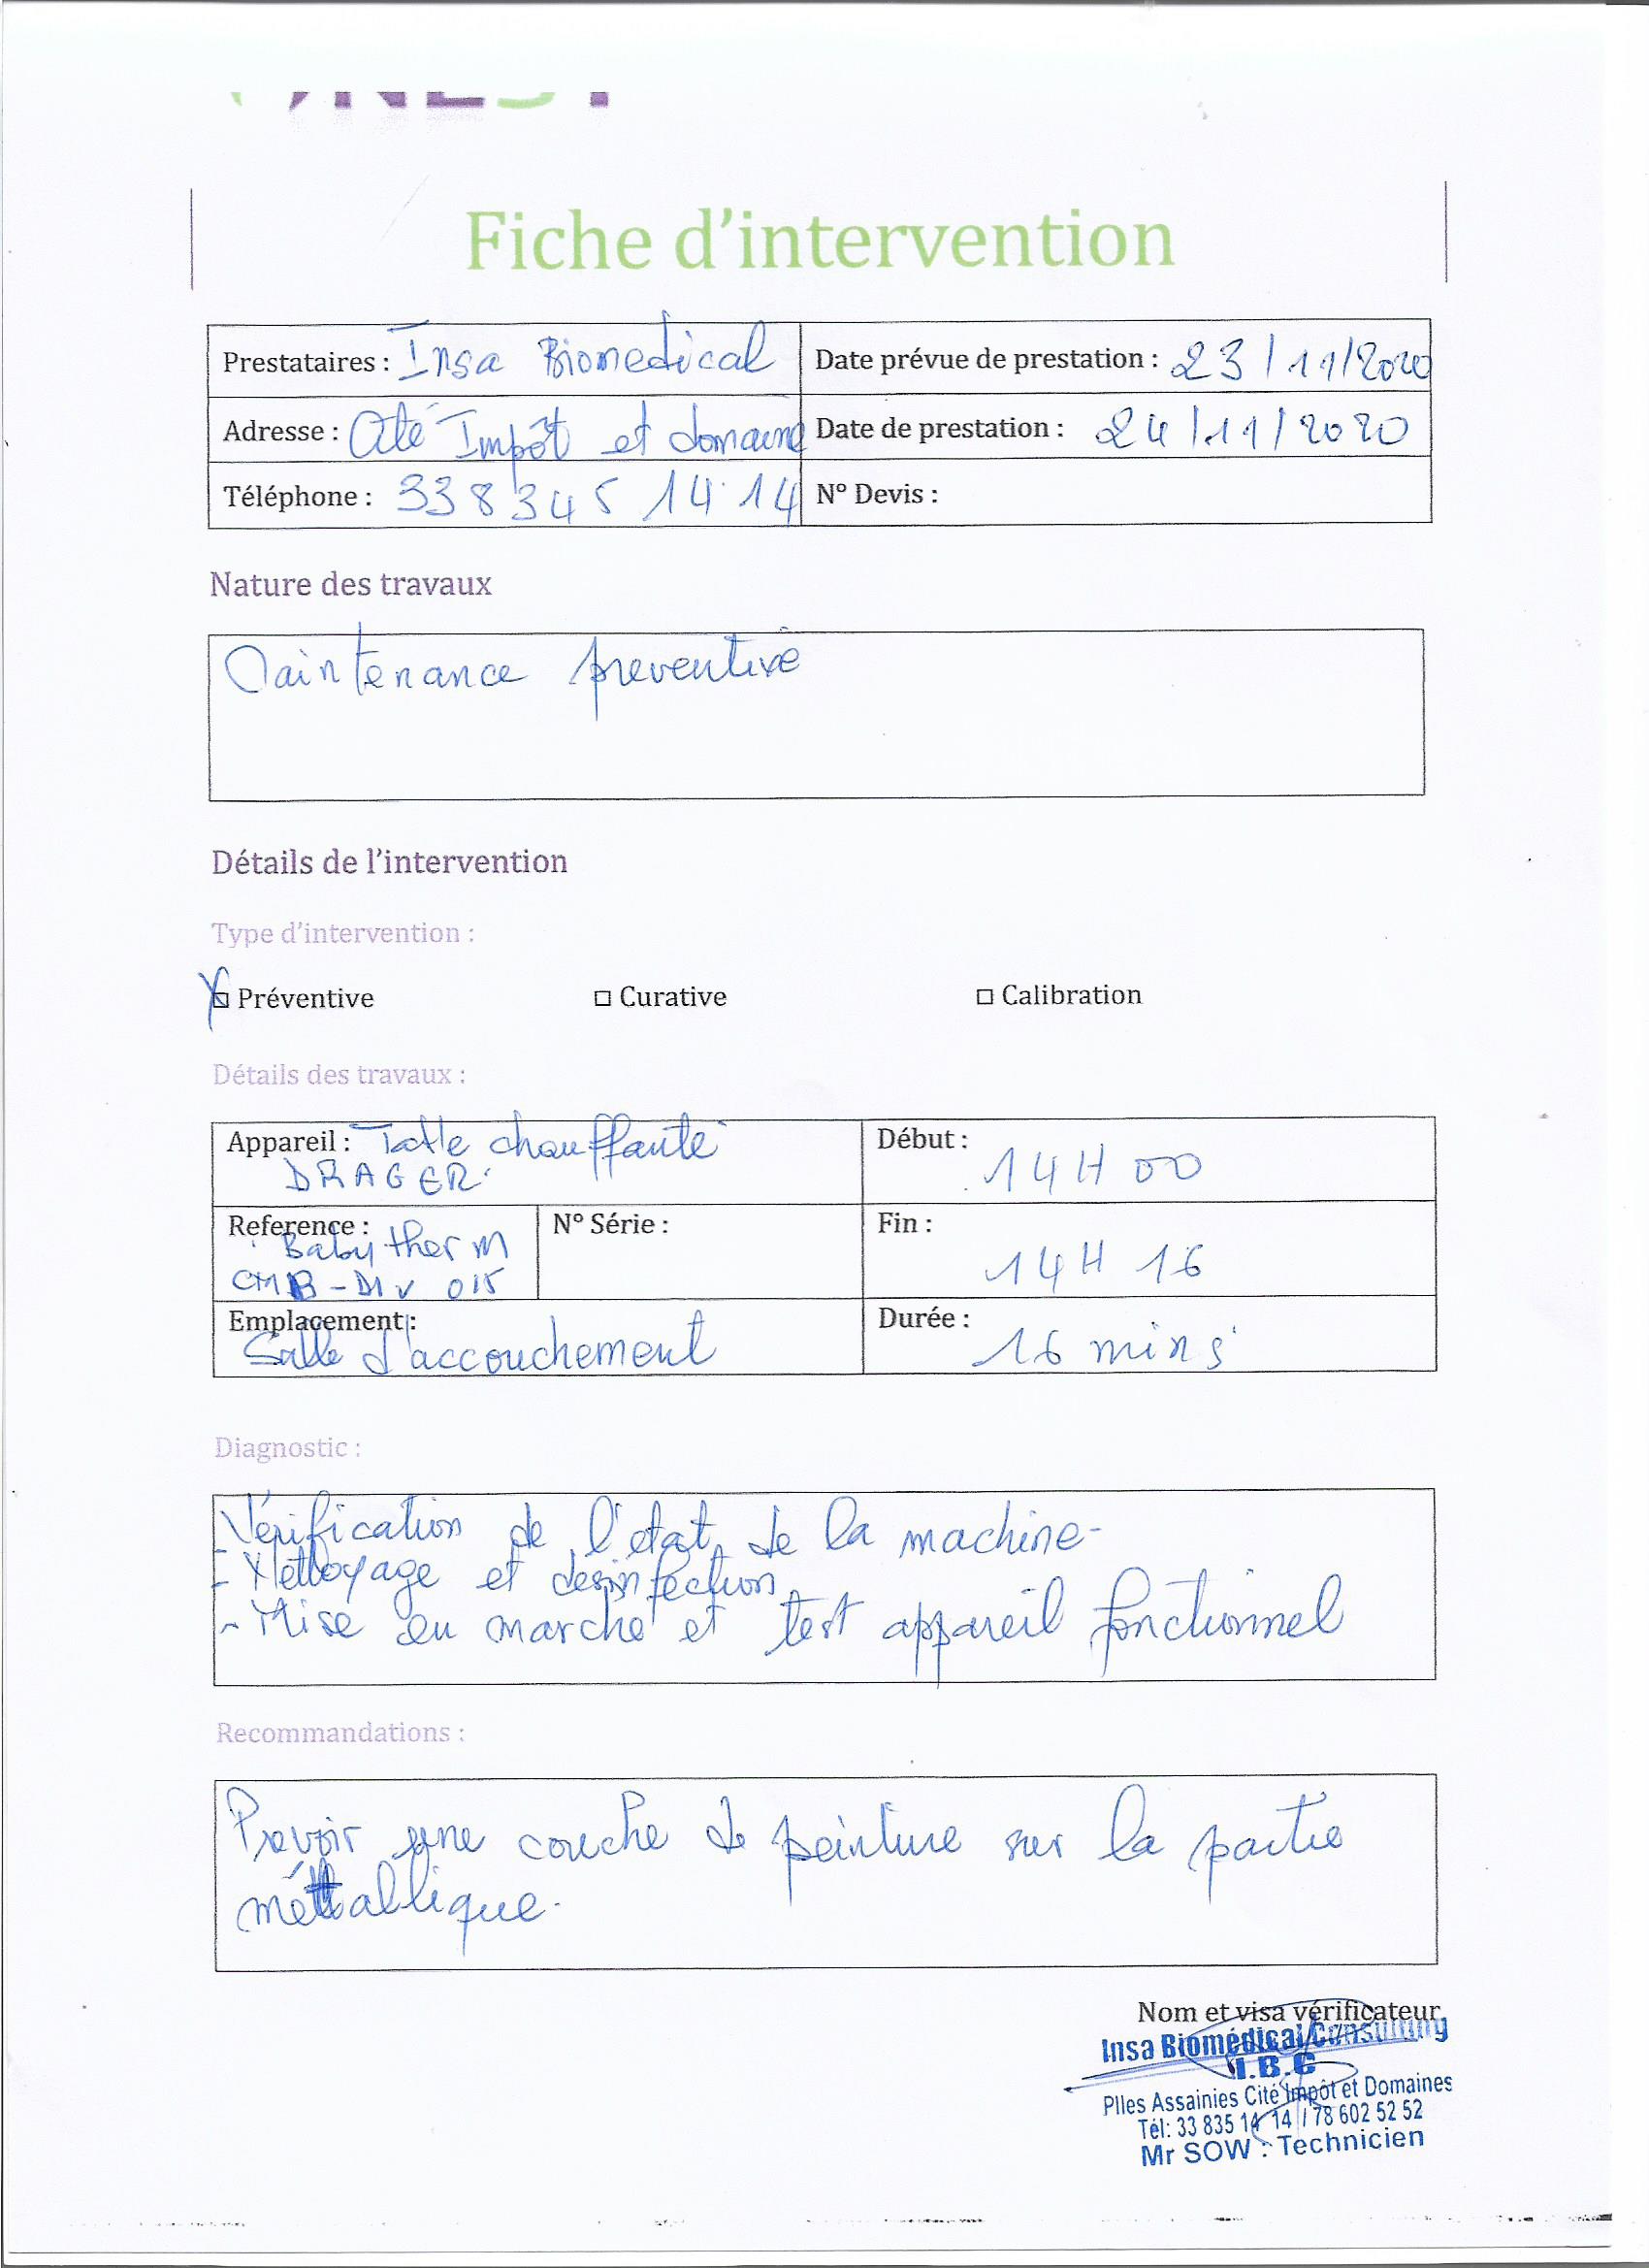 Fiche d'intervention
Prestataires : Insa Biomedical
Date prévue de prestation : 23/11/2020
Adresse : Cité Impôt et domaine
Date de prestation : 24/11/2020
Téléphone : 338345 14 14
N° Devis :
Nature des travaux
Maintenance preventive
Détails de l'intervention
Type d'intervention :
Préventive
Curative
Calibration
Détails des travaux :
Appareil : Table chauffante
DRAGER
Début :
14H 00
Reference :
Babytherm
CMB-DIV 015
N° Série :
Fin :
14H 16
Emplacement :
Salle d'accouchement
Durée :
16 mins
Diagnostic :
- Vérification de l'état de la machine-
- Nettoyage et desinfection
- Mise en marche et test appareil fonctionnel
Recommandations :
Prevoir une couche de peinture sur la partie
métallique.
Nom et visa vérificateur
Insa Biomédical Consulting
I.B.C
Plles Assainies Cité Impôt et Domaines
Tél: 33 835 14 14 / 78 602 52 52
Mr SOW : Technicien